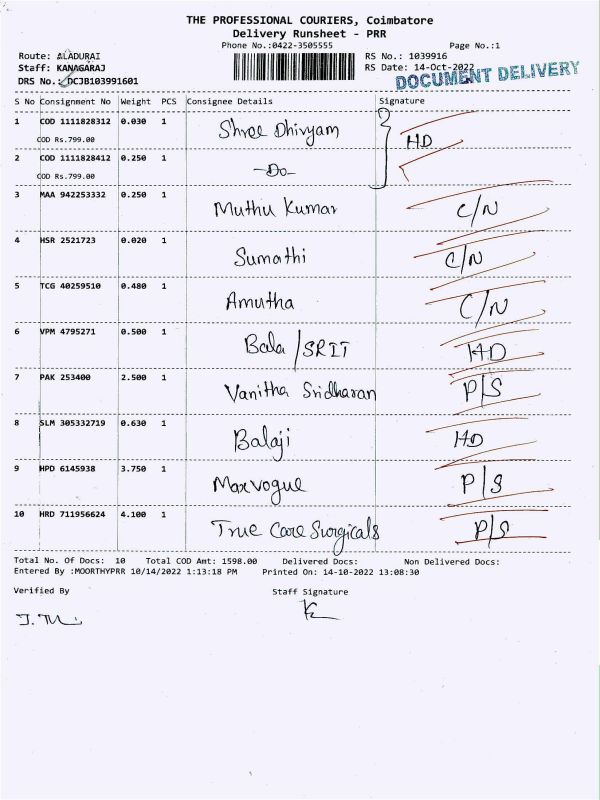 THE PROFESSIONAL COURIERS, Coimbatore
Delivery Runsheet - PRR
Phone No.:0422-3505555 Page No.:1
Route: ALADURAI RS No.: 1039916
Staff: KANAGARAJ RS Date: 14-Oct-2022
DRS No.: DCJB103991601 DOCUMENT DELIVERY
S No Consignment No Weight PCS Consignee Details Signature
1 COD 1111828312 0.030 1 Shree Dhivyam HD
COD Rs.799.00
2 COD 1111828412 0.250 1 -Do-
COD Rs.799.00
3 MAA 942253332 0.250 1 Muthu Kumar C/N
4 HSR 2521723 0.020 1 Sumathi C/N
5 TCG 40259510 0.480 1 Amutha C/N
6 VPM 4795271 0.500 1 Bala/SRIT HD
7 PAK 253400 2.500 1 Vanitha Sridharan P/S
8 SLM 305332719 0.630 1 Balaji HD
9 HPD 6145938 3.750 1 Maxvogue P/S
10 HRD 711956624 4.100 1 True Care Surgicals P/S
Total No. Of Docs: 10 Total COD Amt: 1598.00 Delivered Docs: Non Delivered Docs:
Entered By :MOORTHYPRR 10/14/2022 1:13:18 PM Printed On: 14-10-2022 13:08:30
Verified By Staff Signature